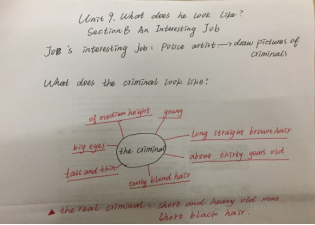 Unit 9. What does he look like?
Section B An Interesting Job
Job's interesting job: Police artist → draw pictures of
criminals
What does the criminal look like?
of medium height
young
long straight brown hair
big eyes
the criminal
about thirty years old
tall and thin
curly blond hair
▲ the real criminal: short and heavy old man
short black hair.